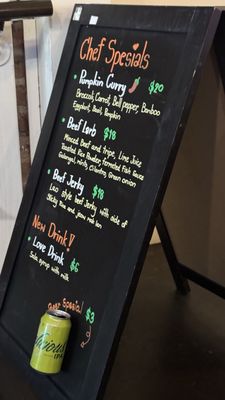 Chef Specials
Pumpkin Curry $20
Broccoli, Carrot, Bell pepper, Bamboo
Eggplant, Basil, Pumpkin
Beef Larb $18
Minced Beef and tripe, Lime Juice
Roasted Rice Powder, Fermented Fish Sauce
Galangal, mint, Cilantro, Green onion
Beef Jerky $18
Lao style beef Jerky with side of
Sticky Rice and jaew mak len
New Drink!
Love Drink $6
Sala syrup with milk
Beer Special $3
IPA